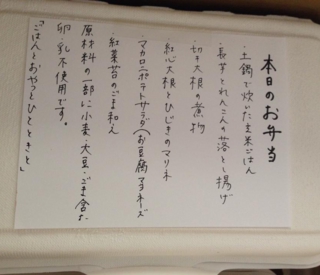 本日のお弁当
・土鍋で炊いた玄米ごはん
・長芋とれんこんの落とし揚げ
・切干大根の煮物
・紅心大根とひじきのマリネ
・マカロニポテトサラダ(お豆腐マヨネーズ
・紅菜苔のごま和え
原材料の一部に小麦、大豆、ごま含む
卵、乳不使用です。
「ごはんとおやつとひとときと」